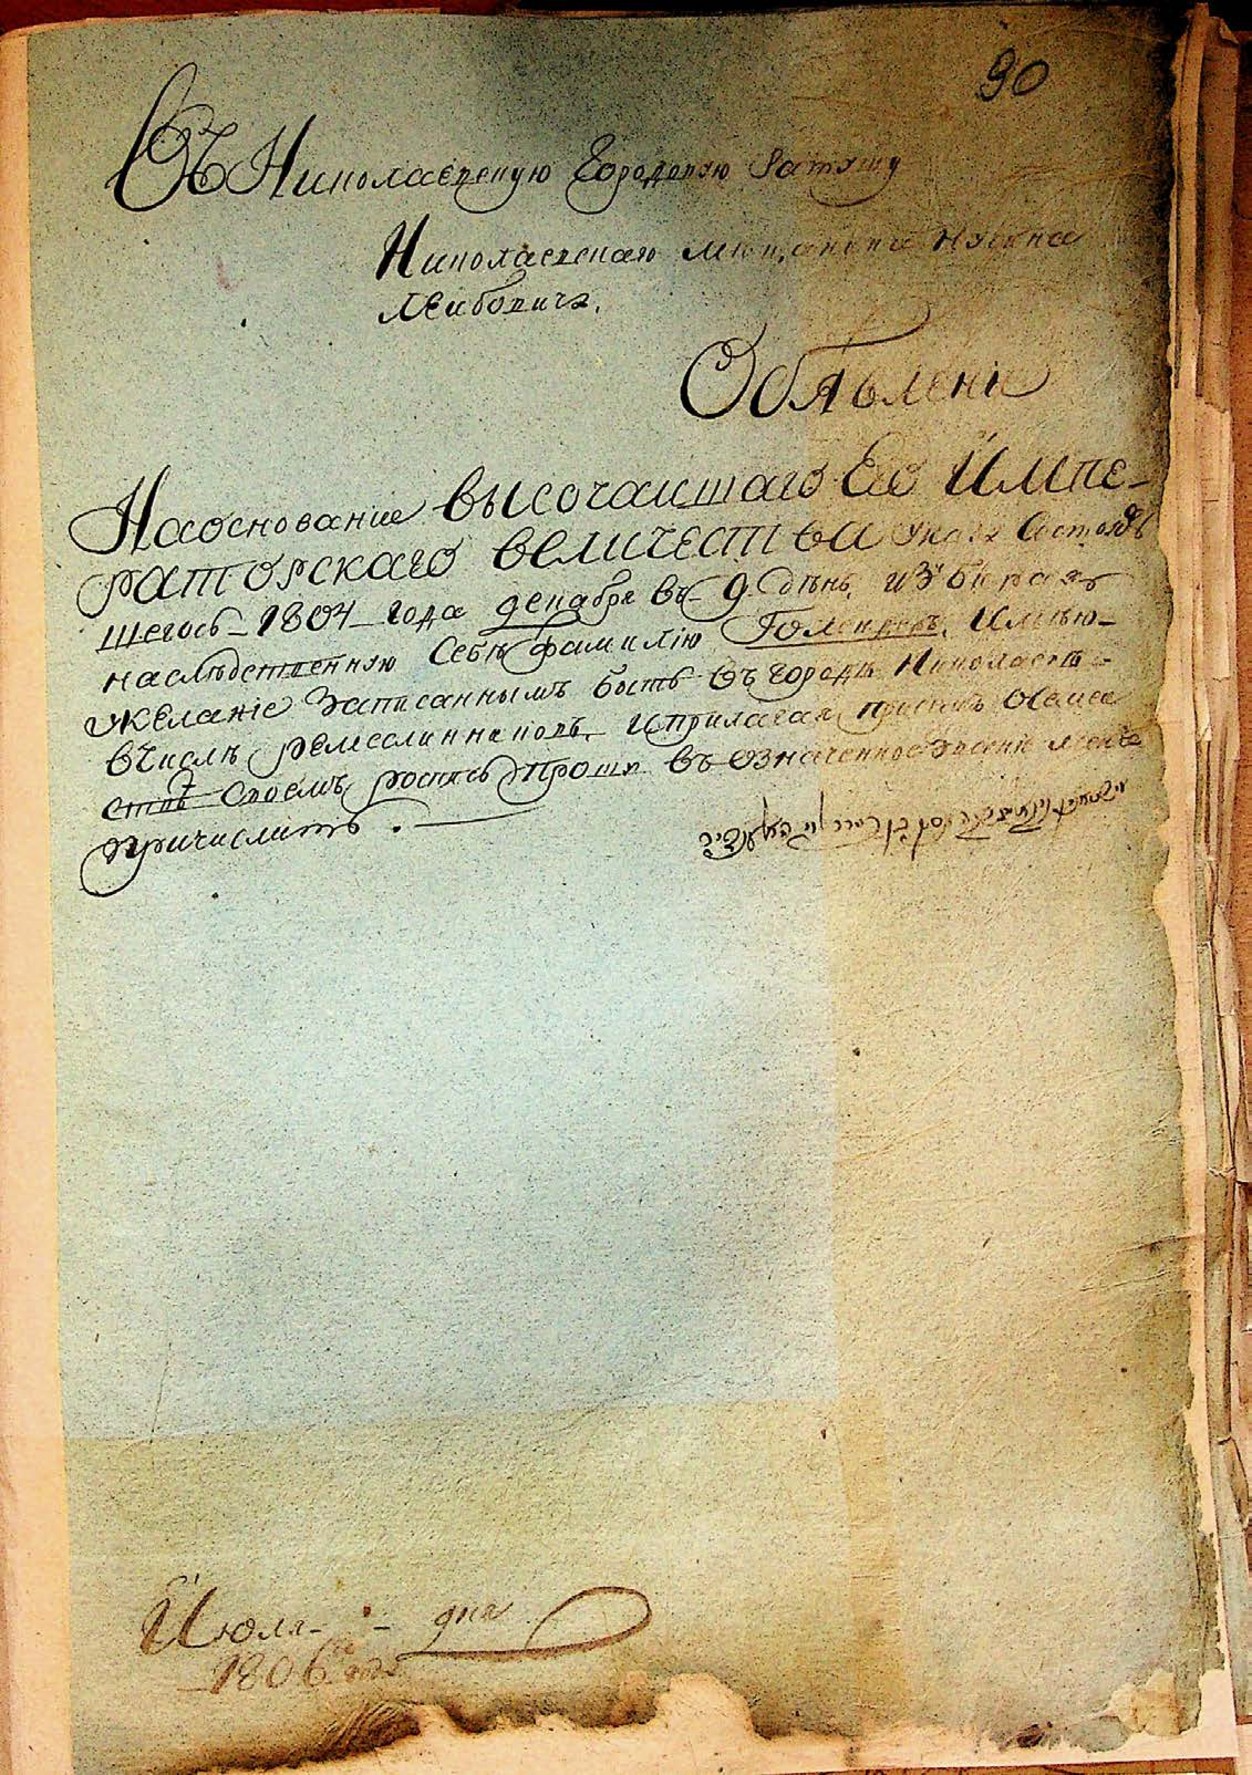 90
Въ Николаевскую Городскую Ратушу
Николаевскаго мещанина Нусина
Лейбовича.
Объявление
На основание высочаишаго Его Импе-
раторскаго величества указа Состояв
шегось 1804 года декабря въ 9 день, избирая
наследственную Себе фамилию Имею
желание записаннымъ быть въ городе Николаеве
в числе ремеслинниковъ, и прилагая при симъ О семе
стве своемъ роспись прошу въ означенное звание мене
причислить.
Июля - дня
1806 года